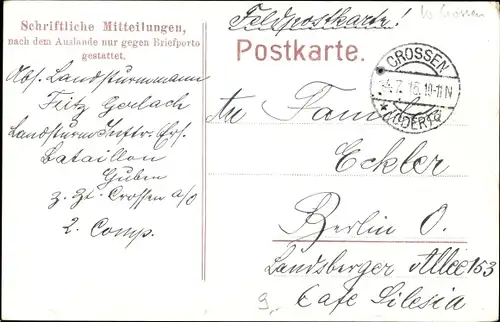 Feldpostkarte!
Schriftliche Mitteilungen,
nach dem Auslande nur gegen Briefporto
gestattet.
Postkarte.
CROSSEN
7.15.10-11N
* (ODER) *
Abs. Landsturmmann
Fritz Gerlach
Landsturm Inftr. Ers.
Bataillon
Guben
z. Zt. Crossen a/O
2. Comp.
An Familie
Eckler
Berlin O.
Landsberger Allee 153
Cafe Silesia